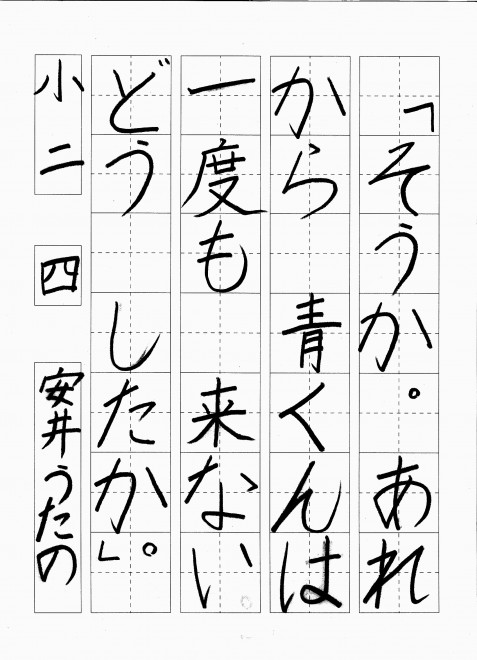 「そうか。 あれ
から 青くんは
一度も 来ない
どう したか。」
小二 四 安井うたの